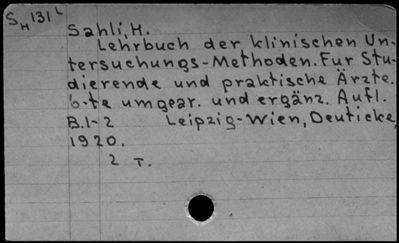 SH 131 L
Sahli, H.
Lehrbuch der klinischen Un-
tersuchungs-Methoden. Fur Stu-
dierende und praktische Ärzte.
6-te umgear. und ergänz. Aufl.
B.1-2 Leipzig-Wien, Deuticke,
1920.
2 T.